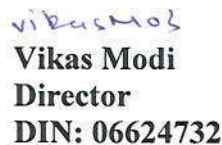 Vikas Modi
Vikas Modi
Director
DIN: 06624732